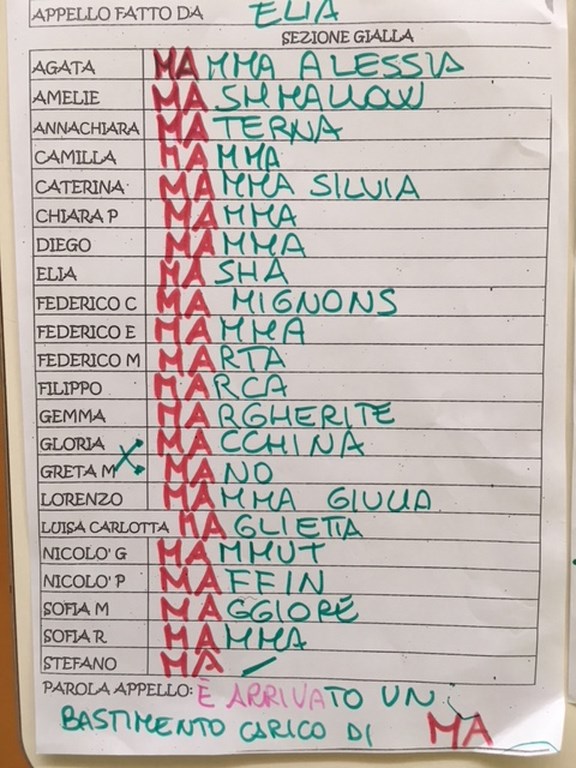 APPELLO FATTO DA ELIA
SEZIONE GIALLA
AGATA MAMMA ALESSIA
AMELIE MASHMALLOW
ANNACHIARA MATERNA
CAMILLA MAMMA
CATERINA MAMMA SILVIA
CHIARA P MAMMA
DIEGO MAMMA
ELIA MASHA
FEDERICO C MA MIGNONS
FEDERICO E MAMMA
FEDERICO M MARTA
FILIPPO MARCA
GEMMA MARGHERITE
GLORIA MACCHINA
GRETA M MANO
LORENZO MAMMA GIULIA
LUISA CARLOTTA MAGLIETTA
NICOLO' G MAMMUT
NICOLO' P MAFFIN
SOFIA M MAGGIORE
SOFIA R MAMMA
STEFANO MA
PAROLA APPELLO: È ARRIVATO UN
BASTIMENTO CARICO DI MA